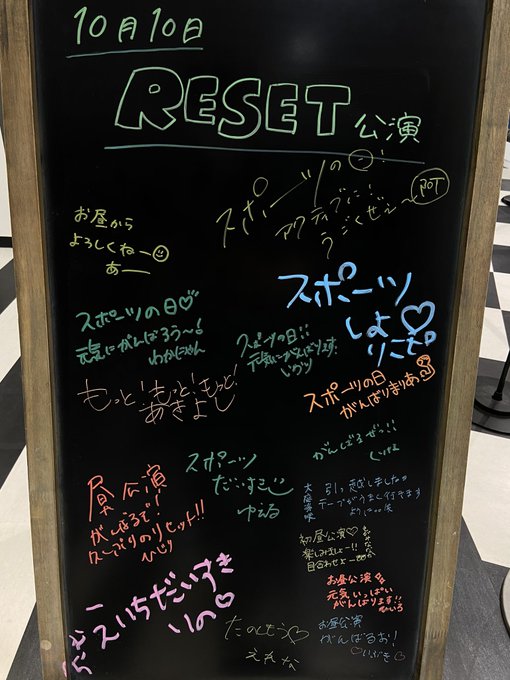 10月10日
RESET 公演
スポーツの日!
アクティブに!
うごくぜぇ〜
お昼から
よろしくねー
あー
スポーツの日♡
元気にがんばろう〜!
わかにゃん
スポーツの日!!
元気にがんばります!
いのり
スポーツ
しよ♡
りこぴ
もっと!もっと!もっと!
あきよし
スポーツの日
がんばりまりあ
がんばるぜっ!!
昼公演
がんばるで!
久しぶりのリセット!!
ひじり
スポーツ
だいすき
ゆえる
引っ越しました。
初昼公演♡
楽しみましょー!!
目合わせよー
お昼公演
元気いっぱい
がんばります!!
ちいろ
えいちだいすき
いの♡
たのしもう♡
えれな
お昼公演
がんばるお!
♡いぶき♡